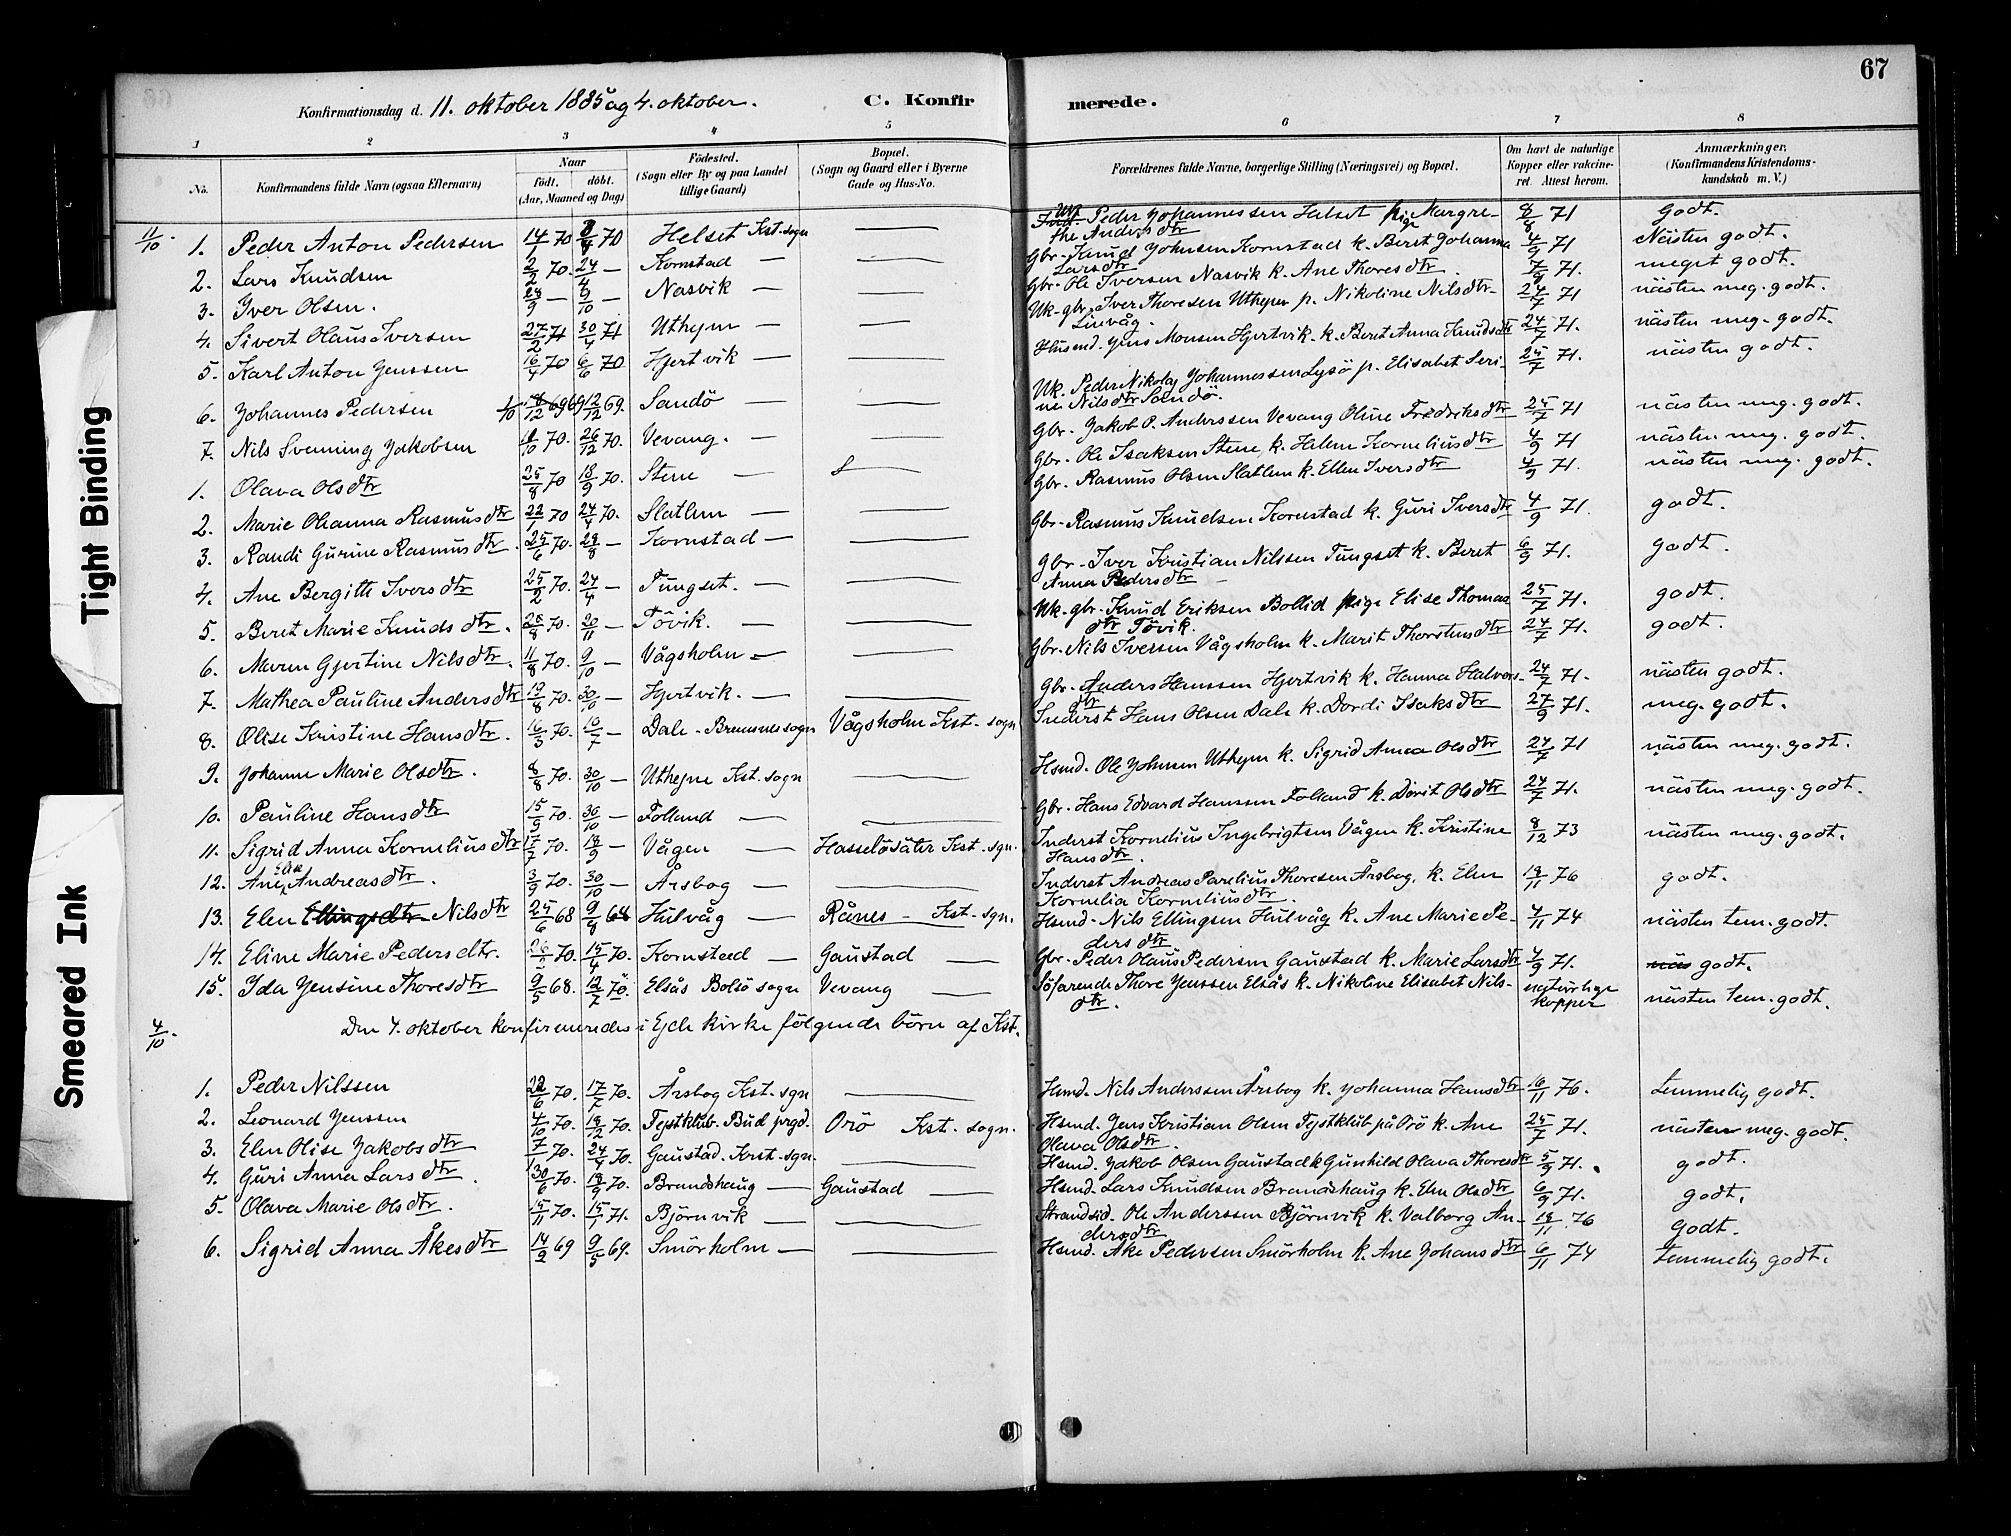 67
Konfirmationsdag d. 11. oktober 1885 og 4. oktober. C. Konfirmerede.
1 2 3 4 5 6 7 8
No. Konfirmandens fulde Navn (ogsaa Efternavn) Naar født. døbt. (Aar, Maaned og Dag) Fødested. (Sogn eller By og paa Landet tillige Gaard) Bopæl. (Sogn og Gaard eller i Byerne Gade og Hus-No. Forældrenes fulde Navne, borgerlige Stilling (Næringsvei) og Bopæl. Om havt de naturlige Kopper eller vakcineret. Attest herom. Anmærkninger. (Konfirmandens Kristendomskundskab m. V.)
11/10 1. Peder Anton Pedersen 14/1 70 70 Helset Kst. sogn — Peder Johannessen Helset pige Margre- 8/8 71 Godt.
the Andersdtr
2. Lars Knudsen 2/2 70. 24/4 — Kornstad — — Gbr. Knud Johnsen Kornstad k. Beret Johanna 4/9 71 Nästen godt.
Larsdtr
3. Iver Olsen. 28/9 — 9/10 — Nasvik — — Gbr. Ole Iversen Nasvik k. Ane Thoresdtr. 71. meget godt.
4. Sivert Olaus Iversen 27/2 71 30/4 71 Uthejm — — Uk. gbr. Iver Thoresen Uthejm p. Nikoline Nilsdtr 24/7 71 nästen meg. godt.
Linvåg.
5. Karl Anton Jenssen 16/4 70 6/6 70 Hjertvik — — Husmd. Jens Monsen Hjertvik. k. Beret Anna Knudsdtr 24/7 71. nästen meg. godt.
6. Johannes Pedersen 1/10 69 12/12 69. Sandö — — Uk. Peder Nikolaj Johannessen Lysö p. Elisabet Seri- 25/7 71. nästen godt.
ne Nilsdtr Sandö.
7. Nils Svenning Jakobsen 70. 26/12 70. Vevang. — — Gbr. Jakob P. Anderssen Vevang Oline Fredriksdtr 25/7 71 nästen meg. godt.
1. Olava Olsdtr 25/8 70 18/9 70. Stene — — Gbr. Ole Isaksen Stene k. Helene Korneliusdtr 4/9 71 nästen meg. godt.
2. Marie Olianna Rasmusdtr 22/1 70 24/4 70. Slatlem — — Gbr. Rasmus Olsen Slatlem k. Ellen Iversdtr 4/9 71. nästen meg. godt.
3. Randi Gurine Rasmusdtr. 25/6 70. 28/8 — Kornstad — — Gbr. Rasmus Knudsen Kornstad k. Guri Iversdtr 4/9 71. godt.
4. Ane Bergitte Iversdtr 25/2 70. 24/4 — Tungset. — — Gbr. Iver Kristian Nilssen Tungset k. Beret 6/9 71. godt.
Anna Pedersdtr —
5. Beret Marie Knudsdtr. 28/8 70. 20/11 — Tövik. — — Uk. gbr. Knud Eriksen Bollid pige Elise Thomas 25/7 71. godt.
dtr Tövik.
6. Maren Gjertine Nilsdtr. 11/8 70. 9/10 — Vågsholm — — Gbr. Nils Iversen Vågsholm k. Marit Thorstensdtr 24/7 71. godt.
7. Mathea Pauline Andersdtr 12/8 70. 30/10 — Hjertvik. — — Gbr. Anders Hanssen Hjertvik k. Hanna Halvors- 24/7 71. nästen godt.
dtr
8. Olise Kristine Hansdtr. 16/3 70. 10/7 — Dale - Bremsnes sogn Vågsholm Kst. sogn Inderst Hans Olsen Dale k. Dordi Isaksdtr 27/9 71. meg. godt.
9. Johanne Marie Olsdtr. 8/8 70. 30/10 — Uthejm Kst. sogn — Hsmd. Ole Johnsen Uthejm k. Sigrid Anna Olsdtr 24/7 71 nästen meg. godt.
10. Pauline Hansdtr 15/9 70. 30/10 — Folland — — Gbr. Hans Edvard Hanssen Folland k. Dorit Olsdtr 24/7 71. nästen meg. godt.
11. Sigrid Anna Korneliusdtr 17/7 70. 18/9 — Vågen — Hasselösäter Kst. sgn. Inderst Kornelius Ingebrigtsen Vågen k. Kristine 8/12 73 nästen meg. godt.
Hansdtr.
12. Ane Elise Andreasdtr. 3/9 70. 30/10 — Årsbog — — Inderst Andreas Parelius Thoresen Årsbog. k. Elen 18/11 76 godt.
Kornelia Korneliusdtr.
13. Elen Ellingsdtr Nilsdtr 25/6 68 9/8 68 Hulvåg — Rånes - Kst. sgn. Hsmd. Nils Ellingsen Hulvåg k. Ane Marie Pe- 4/11 74 nästen tem. godt.
dersdtr
14. Eline Marie Pedersdtr. 70. 15/4 70. Kornstad — Gaustad — Gbr. Peder Olaus Pedersen Gaustad k. Marie Larsdtr 4/9 71. näs godt.
15. Ida Jensine Thoresdtr 9/5 68. 12/7 70. Elsås Bolsö sogn Vevang — Söfarende Thore Jenssen Elsås k. Nikoline Elisabet Nils- naturlige kopper nästen tem. godt.
dtr.
4/10 Den 4. oktober konfirmeredes i Ejde kirke følgende børn af Kst.
1. Peder Nilssen 22/6 70. 17/7 70. Årsbog Kst. sgn — Hsmd. Nils Anderssen Årsbog k. Johanna Hansdtr 16/11 76. temmelig godt.
2. Leonard Jenssen 4/10 70. 18/12 70. Tejstklub. Bud prgd. Orö Kst. sogn. Hsmd. Jens Kristian Olsen Tejstklub på Orö k. Ane 25/7 71. nästen meg. godt.
Olava Olsdtr.
3. Elen Olise Jakobsdtr 7/1 70. 24/4 70. Gaustad. Krst. sgn. — Hsmd. Jakob Olsen Gaustad k Gunhild Olava Thoresdtr 5/9 71. godt.
4. Guri Anna Larsdtr. 30/6 70. 18/9 70. Brandshaug — Gaustad — Hsmd. Lars Knudsen Brandshaug k. Elen Olsdtr 6/9 71. godt.
5. Olava Marie Olsdtr. 15/11 70. 15/1 71. Björnvik — — Strandsid. Ole Anderssen Björnvik k. Valborg An- 18/11 76 Godt.
dersdtr
6. Sigrid Anna Åkesdtr 14/2 69 9/5 69. Smörholm — — Hsmd. Åke Pedersen Smörholm k. Ane Johansdtr 6/11 74 temmelig godt.
Tight Binding
Smeared Ink